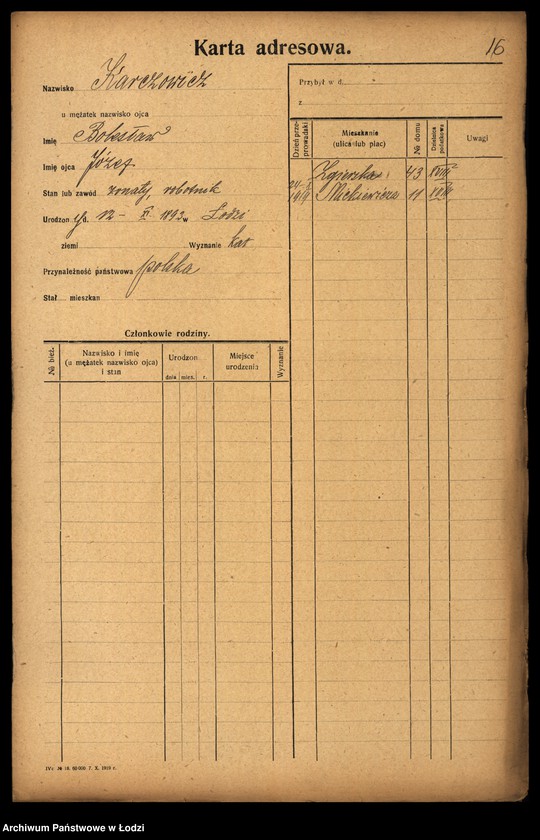 Karta adresowa.
16
Nazwisko Karczowicz
u mężatek nazwisko ojca
Imię Bolesław
Imię ojca Józef
Stan lub zawód żonaty, robotnik
Urodzon y d. 12 – XI 1893 w Łodzi
ziemi Wyznanie kat
Przynależność państwowa polska
Stał mieszkan
Przybył w d.
z
Dzień przeprowadzki
Mieszkanie (ulica lub plac)
№ domu
Dzielnica podatkowa
Uwagi
Zgierska 43
Mickiewicza 11
Członkowie rodziny.
№ bież.
Nazwisko i imię (u mężatek nazwisko ojca) i stan
Urodzon
dnia mies. r.
Miejsce urodzenia
Wyznanie
Archiwum Państwowe w Łodzi